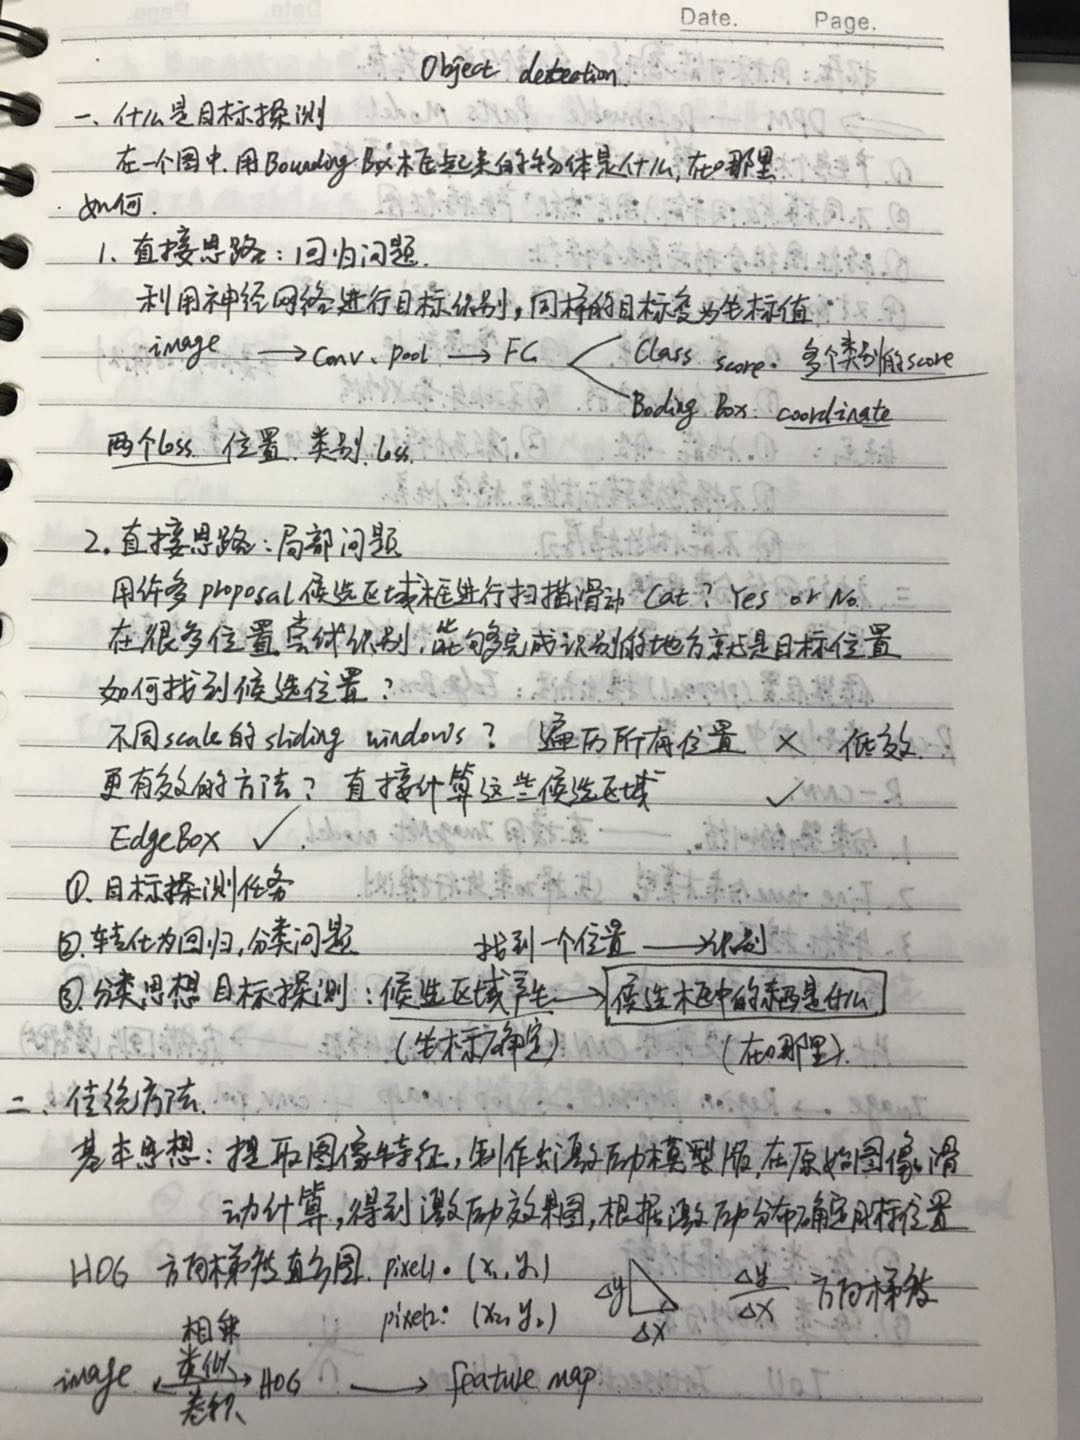 Date.    Page.
Object detection
一、什么是目标探测
在一个图中,用Bounding Box框起来的物体是什么,在哪里
如何.
1、直接思路:回归问题.
利用神经网络进行目标识别,同样的目标变为坐标值
image → Conv、pool → FC Class score. 多个类别的score
Boding Box coordinate
两个loss 位置、类别 loss.
2.直接思路:局部问题
用许多proposal候选区域框进行扫描滑动 Cat? Yes or No.
在很多位置尝试识别,能够完成识别的地方就是目标位置
如何找到候选位置?
不同scale的sliding windows? 遍历所有位置 × 低效.
更有效的方法? 直接计算这些候选区域 ✓
EdgeBox ✓.
①.目标探测任务
②.转化为回归,分类问题 找到一个位置 → 识别
③.分类思想目标探测:候选区域产生 → 候选框中的东西是什么
(坐标确定) (在哪里).
二、传统方法.
基本思想:提取图像特征,制作出激励模型版,在原始图像滑
动计算,得到激励效果图,根据激励分布确定目标位置
HOG 方向梯度直方图. pixel1.(x₁,y₁) Δy Δy/Δx 方向梯度
pixel2:(x₂,y₂) Δx
相乘
类似
image ↔ HOG → feature map
卷积